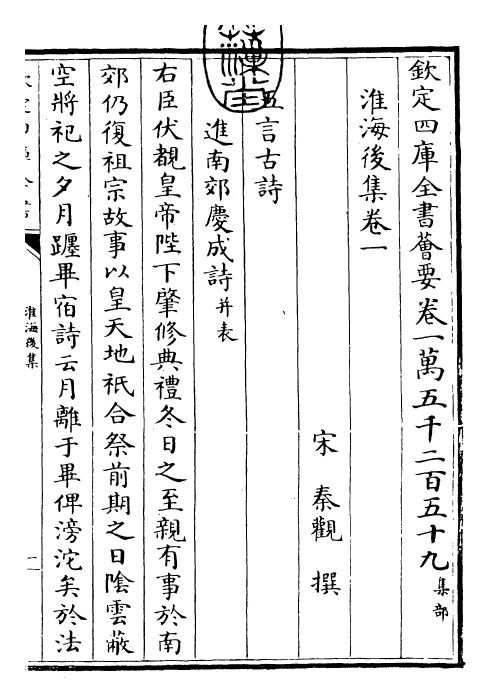 欽定四庫全書薈要卷一萬五千二百五十九 集部
淮海後集卷一
宋 秦觀 撰
五言古詩
進南郊慶成詩并表
右臣伏覩皇帝陛下肇修典禮冬日之至親有事於南
郊仍復祖宗故事以皇天地祇合祭前期之日陰雲蔽
空將祀之夕月躔畢宿詩云月離于畢俾滂沱矣於法
淮海後集
一